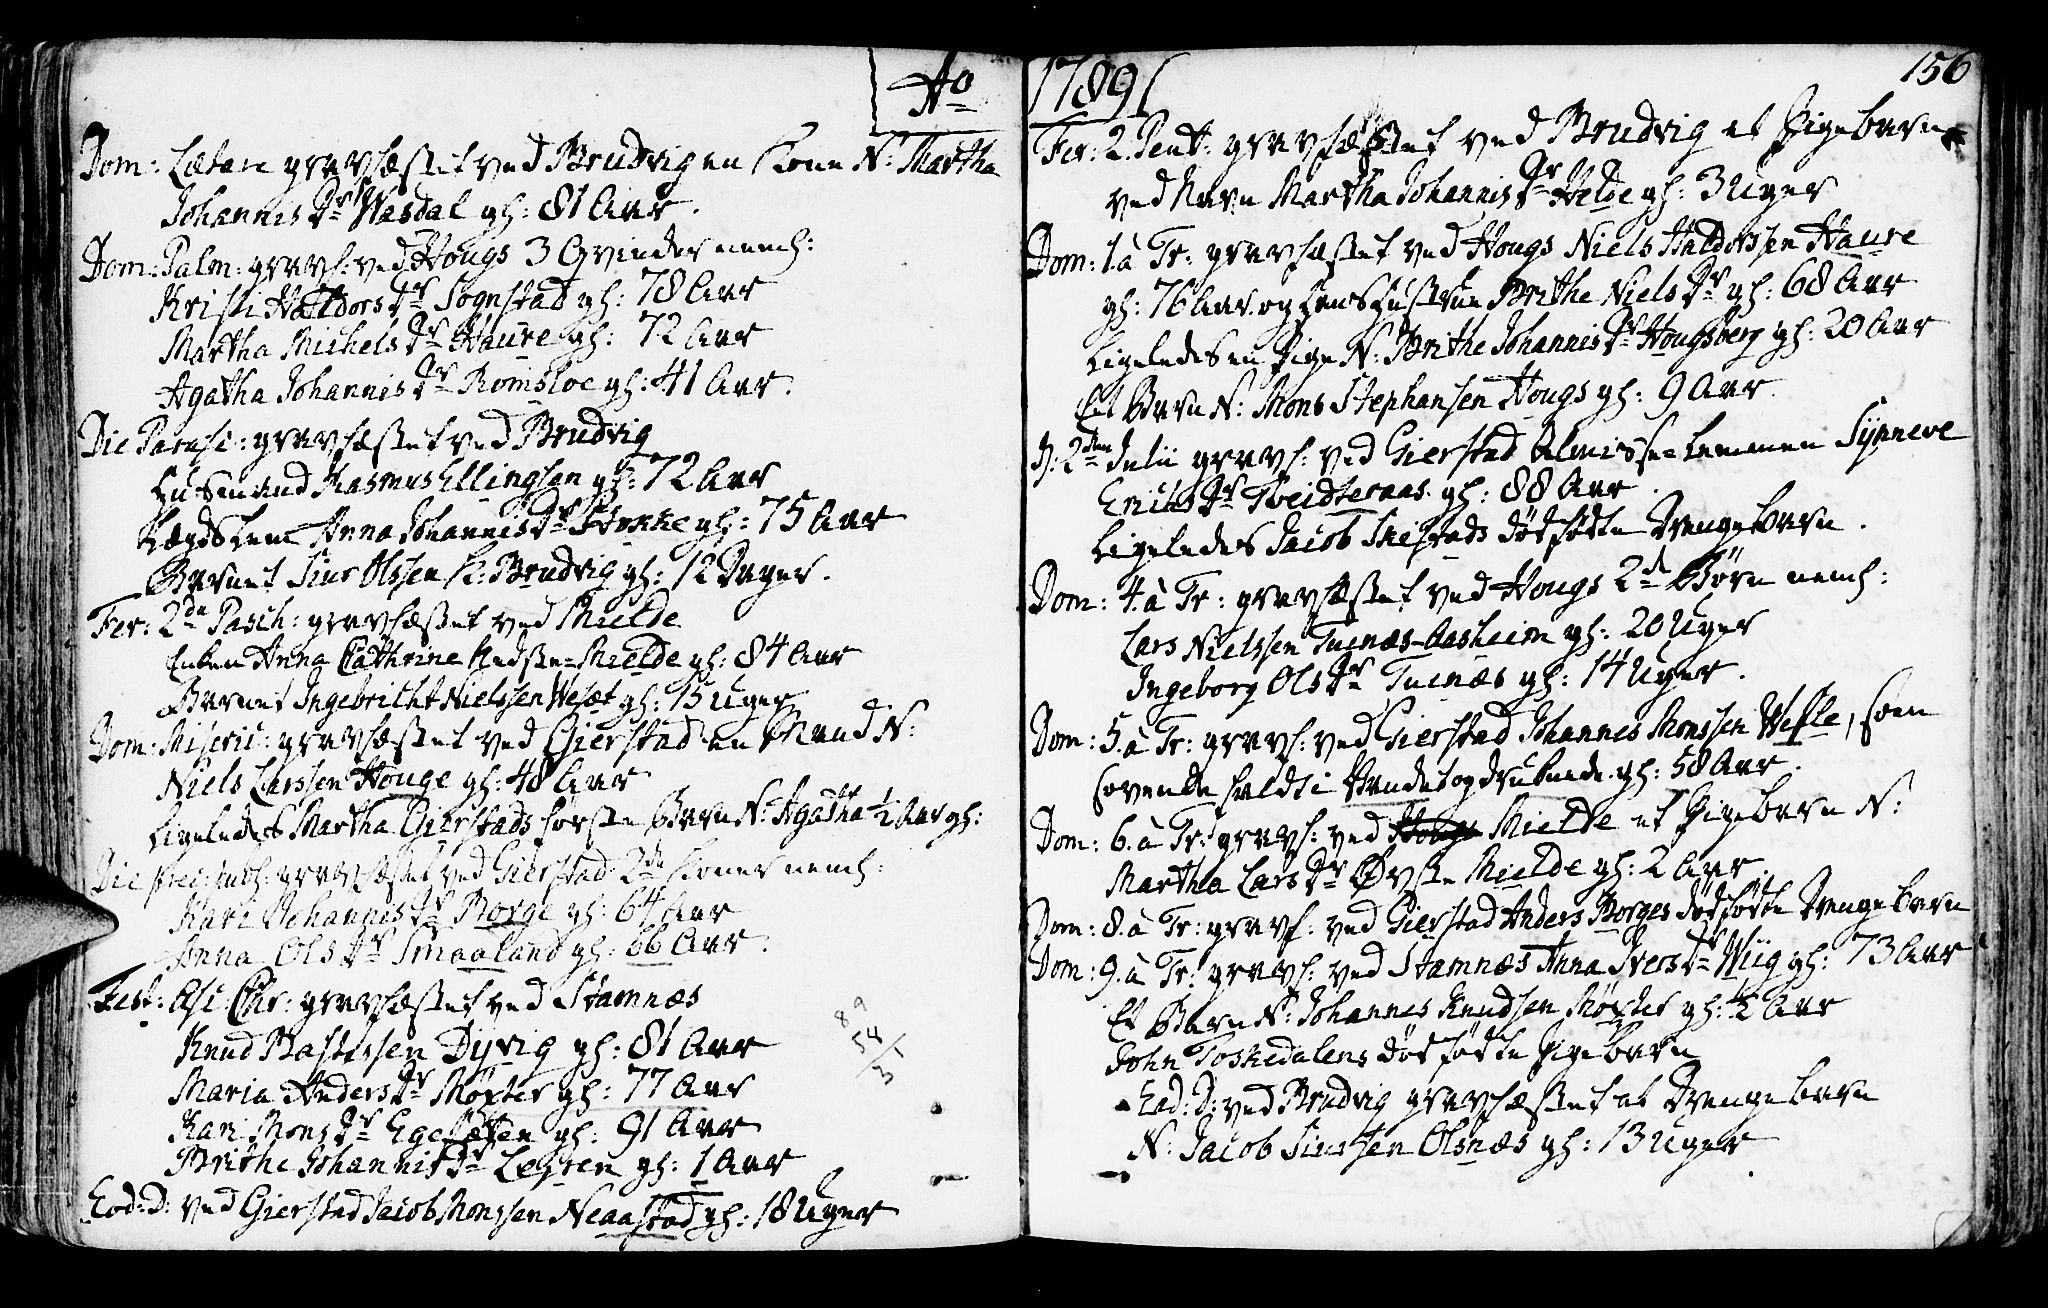 Ao
Dom: Lætare gravfæstet ved Brudvig en Kone N: Martha
Johannis Dr Wasdal gl: 81 Aar.
Dom: Palm: gravf: ved Hougs 3 Qvinder neml:
Kristi Haldors Dr Sognstad gl: 78 Aar
Martha Michels Dr Haure gl: 72 Aar
Agatha Johannis Dr Romsloe gl: 41 Aar.
Die Parasc: gravfæstet ved Brudvig
Husmand Rasmus Ellingsen gl: 72 Aar
Lægdslem Anna Johannis Dr Stokke gl: 75 Aar
Barnet Siur Olssen Brudvig gl: 12 Dager.
Fer: 2de Pasch: gravfæstet ved Mielde
Enken Anna Cathrine Nedste Mielde gl: 84 Aar
Barnet Ingebricht Nielssen Wesæt gl: 15 Uger
Dom: Miseric: gravfæstet ved Gierstad en Mand N:
Niels Larssen Houge gl: 48 Aar
ligeledes Martha Gierstads Barn N: Agatha 1/2 Aar gl:
Die gravfæstet ved Gierstad 2de Koner neml:
Kari Johannis Dr Borge gl: 64 Aar
Anna Ols Dr Smaaland gl: 66 Aar.
Fest: Asc: Chr: gravfæstet ved Stamnæs
Knud Bastessen Dyvig gl: 81 Aar
Maria Anders Dr Møxter gl: 77 Aar
Kari Mons Dr gl: 91 Aar
Brithe Johannis Dr Leiren gl: 1 Aar
Eod: D: ved Gierstad Jacob Monssen Neaastad gl: 18 Uger
89
54/1
3
1789
156
Fer: 2. Pent: gravfæstet ved Brudvig et Pigebarn
ved Navn Martha Johannis Dr Helde gl: 3 Uger
Dom: 1. à Tr: gravfæstet ved Hougs Niels Haldorssen Haure
gl: 76 Aar og hans Hustrue Brithe Niels Dr gl: 68 Aar
ligeledes en Pige N: Brithe Johannis Dr Hougsberg gl: 20 Aar
Et Barn N: Mons Stephansen Hougs gl: 9 Aar.
D: 2den Julii gravf: ved Gierstad Almisse Lemmen Synneve
Erichs Dr Tveidteraas gl: 88 Aar.
ligeledes Jacob Skistads dødfødte Drengebarn.
Dom: 4. à Tr: gravfæstet ved Hougs 2de Børn neml:
Lars Nielssen Tuenæs-Aasheim gl: 20 Uger
Ingeborg Ols Dr Tuenæs gl: 14 Uger.
Dom: 5. à Tr: gravf: ved Gierstad Johannes Monssen Wesle, som
sovende faldt i Vandet og druknede. gl: 58 Aar.
Dom: 6. à Tr: gravf: ved Hougs Mielde et Pigebarn N:
Martha Lars Dr Øvste Mielde gl: 2 Aar.
Dom: 8. à Tr: gravf: ved Gierstad Anders Borges dødfødte Drengebarn
Dom: 9. à Tr: gravf: ved Stamnæs Anna Ivers Dr Wiig gl: 73 Aar
Et Barn N: Johannes Knudsen Møxter gl: 1/2 Aar
John Toskedalens dødfødte Pigebarn
Eod: D: ved Brudvig gravfæstet et Drengebarn
N: Jacob Siurssen Olsnæs gl: 13 Uger